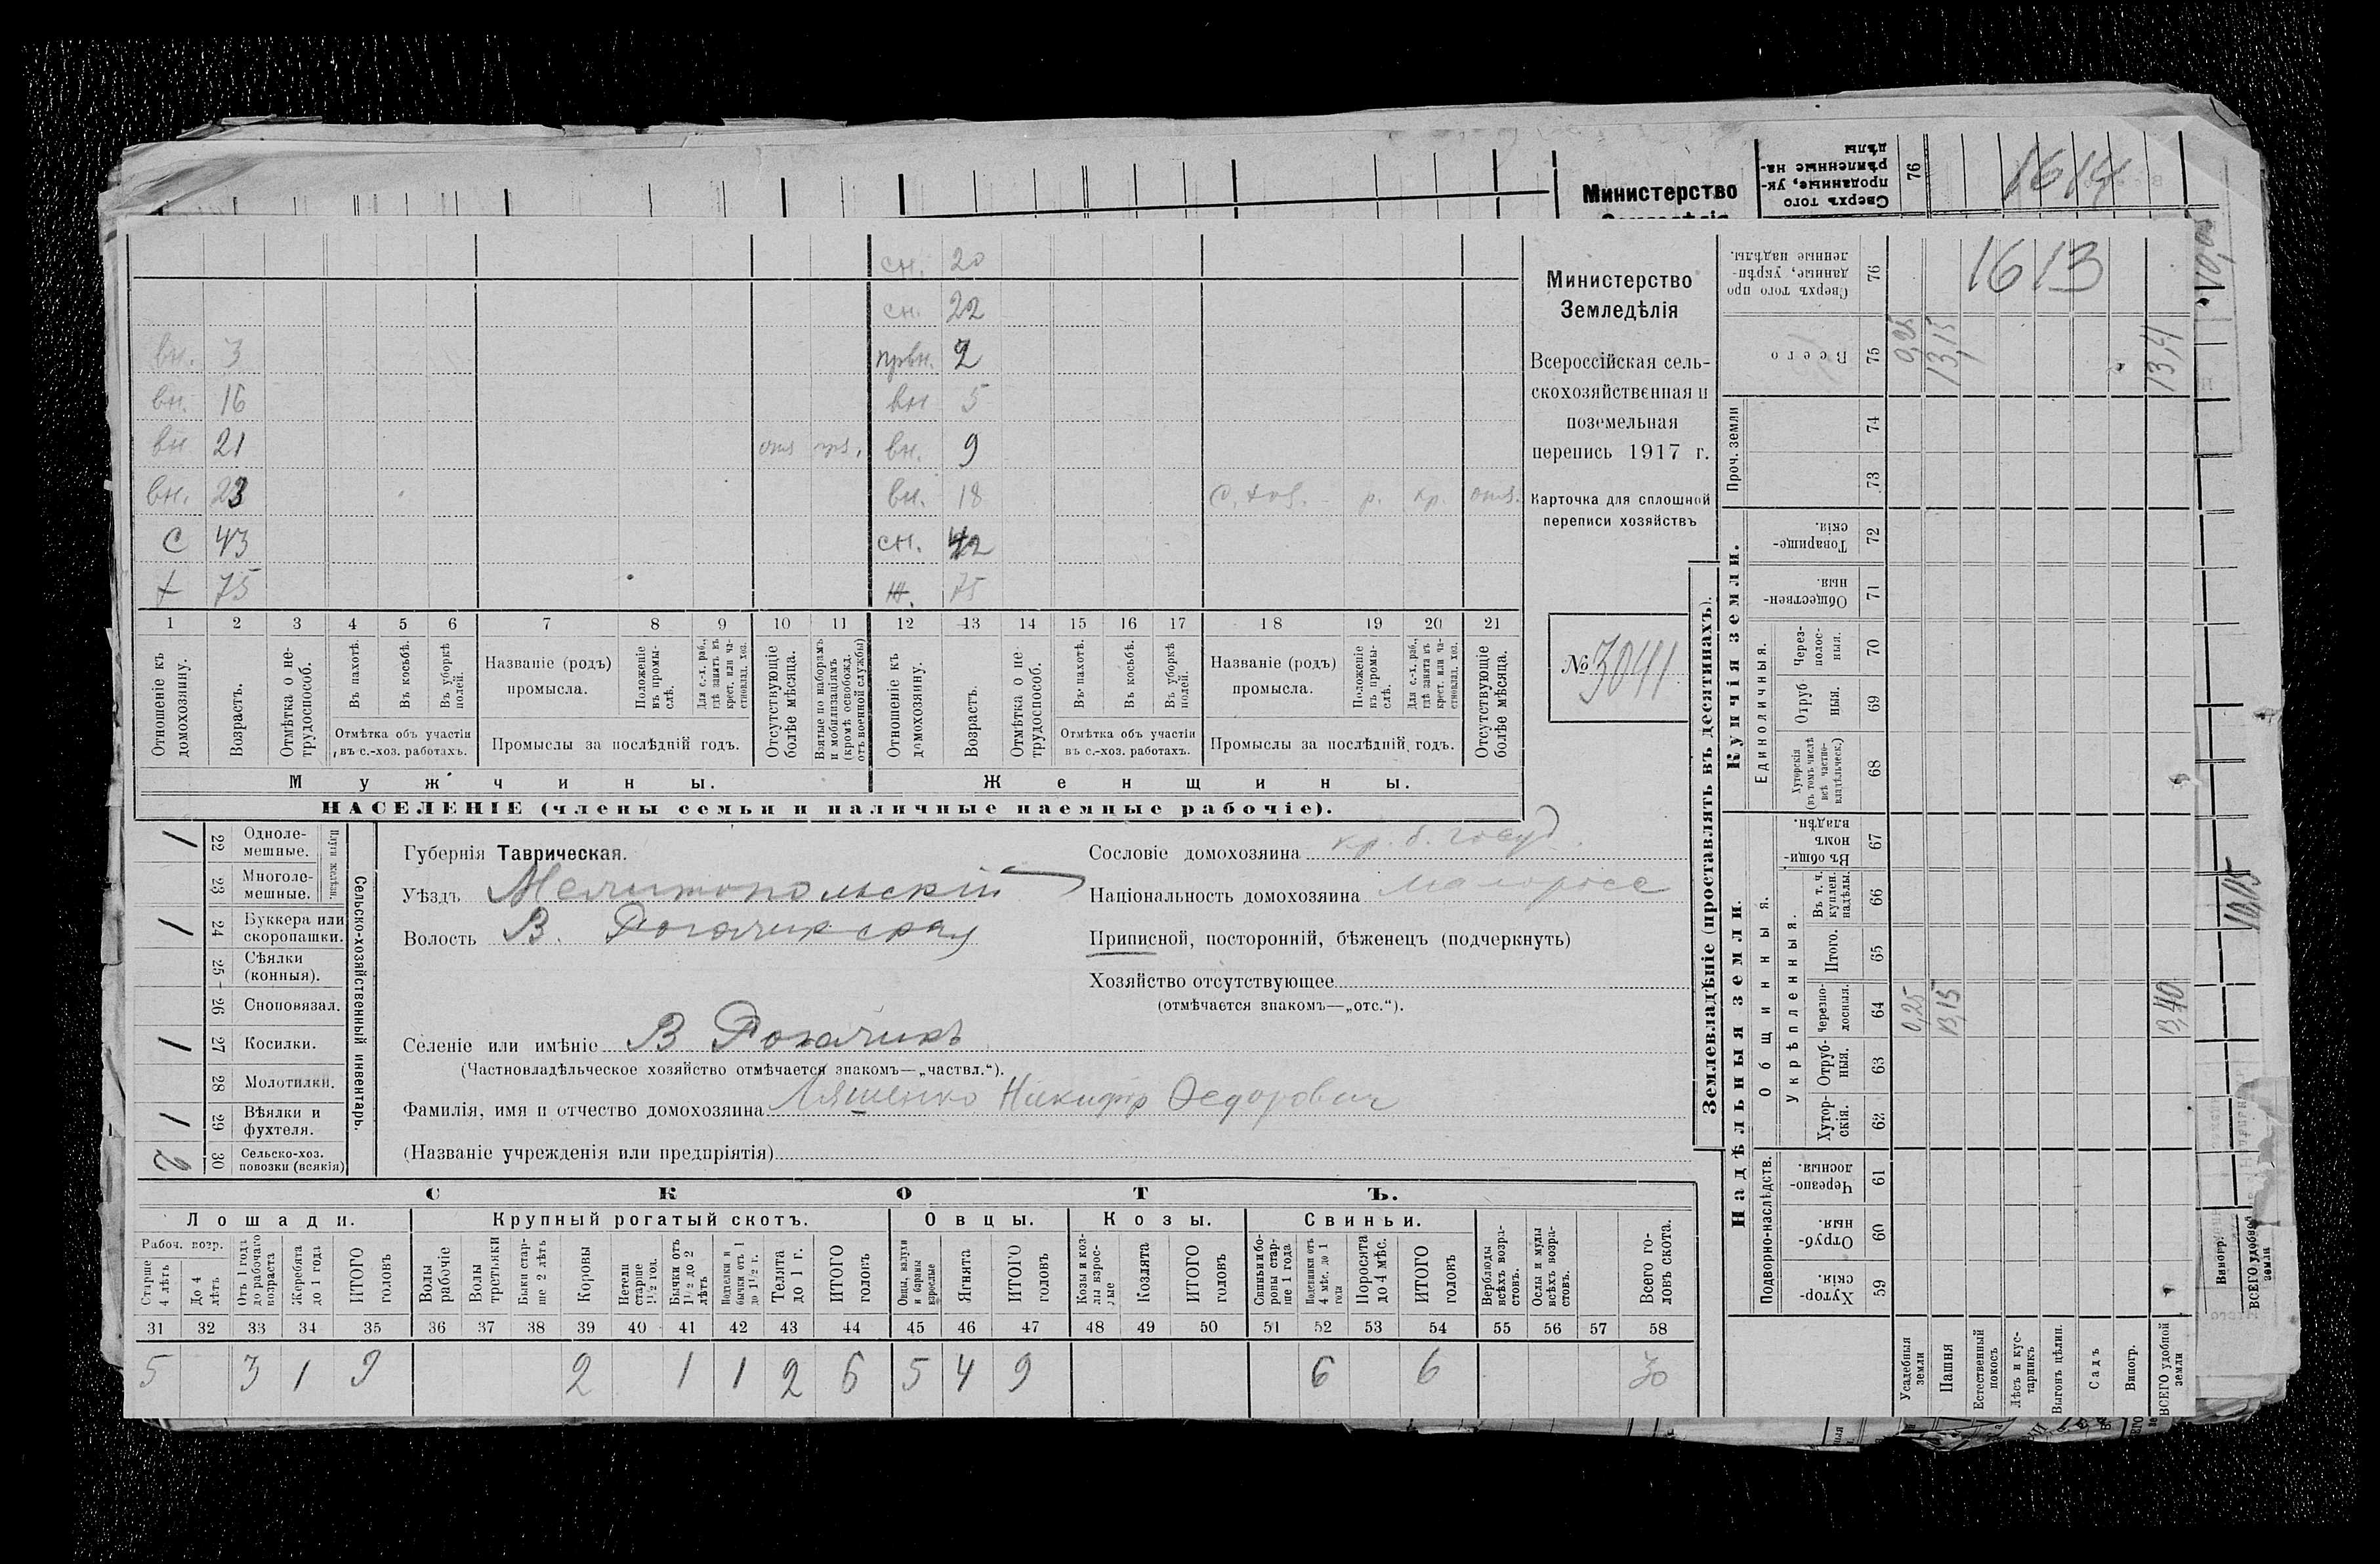 Министерство
Сверхъ того
проданные, ук-
рѣпленные на-
дѣлы
76
1614
сн. 20
сн. 22
вн. 3 првн. 2
вн. 16 вн 5
вн 21 вн. 9
вн. 23 вн. 18 р. кр. отс.
С 43 сн. 42
75 75
1 2 3 4 5 6 7 8 9 10 11 12 13 14 15 16 17 18 19 20 21
Отношеніе къ домохозяину.
Возрастъ.
Отмѣтка о не-трудоспособ.
Въ пахотѣ.
Въ косьбѣ.
Въ уборкѣ полей.
Отмѣтка объ участіи
въ с.-хоз. работахъ.
Названіе (родъ)
промысла.
Положеніе въ промы-слѣ.
Для с.-х. раб., гдѣ занятъ въ крест. или ча-стновлад. хоз.
Промыслы за послѣдній годъ.
Отсутствующіе болѣе мѣсяца.
Взятые по наборамъ и мобилизаціямъ (кромѣ освобожд. отъ военной службы)
Отношеніе къ домохозяину.
Возрастъ.
Отмѣтка о не-трудоспособ.
Въ пахотѣ.
Въ косьбѣ.
Въ уборкѣ полей.
Отмѣтка объ участіи
въ с.-хоз. работахъ.
Названіе (родъ)
промысла.
Положеніе въ промы-слѣ.
Для с.-х. раб., гдѣ занята въ крест. или ча-стновлад. хоз.
Промыслы за послѣдній годъ.
Отсутствующіе болѣе мѣсяца.
Мужчины. Женщины.
НАСЕЛЕНІЕ (члены семьи и наличные наемные рабочіе).
Министерство
Земледѣлія
Всероссійская сель-
скохозяйственная и
поземельная
перепись 1917 г.
Карточка для сплошной
переписи хозяйствъ
№ 3041
Сельско-хозяйственный инвентарь.
1 22 Одноле-мешные.
23 Многоле-мешные.
1 24 Буккера или скоропашки.
25 Сѣялки (конныя).
26 Сноповязал.
1 27 Косилки.
28 Молотилки.
1 29 Вѣялки и фухтеля.
2 30 Сельско-хоз. повозки (всякія)
Губернія Таврическая.
Уѣздъ Мелитопольскій
Волость В. Рогачикская
Селеніе или имѣніе В Рогачикъ
(Частновладѣльческое хозяйство отмѣчается знакомъ—„частвл.“).
Фамилія, имя и отчество домохозяина Ляшенко Никифор Федорович
(Названіе учрежденія или предпріятія)
Сословіе домохозяина кр. б. госуд.
Національность домохозяина малоросс
Приписной, посторонній, бѣженецъ (подчеркнуть)
Хозяйство отсутствующее
(отмѣчается знакомъ—„отс.“).
СКОТЪ.
Лошади. Крупный рогатый скотъ. Овцы. Козы. Свиньи.
Рабоч. возр.
Старше 4 лѣтъ
До 4 лѣтъ
Отъ 1 года до рабочаго возраста
Жеребята до 1 года
ИТОГО головъ
Волы рабочіе
Волы третьяки
Быки стар-ше 2 лѣтъ
Коровы
Нетели старше 1½ год.
Бычки отъ 1½ до 2 лѣтъ
Подтелки и бычки отъ 1 до 1½ г.
Телята до 1 г.
ИТОГО головъ
Овцы, валухи и бараны взрослые
Ягнята
ИТОГО головъ
Козы и коз-лы взрос-лые
Козлята
ИТОГО головъ
Свиньи и бо-ровы стар-ше 1 года
Подсвинки отъ 4 мѣс. до 1 года
Поросята до 4 мѣс.
ИТОГО головъ
Верблюды всѣхъ возра-стовъ.
Ослы и мулы всѣхъ возра-стовъ.
Всего го-ловъ скота.
31 32 33 34 35 36 37 38 39 40 41 42 43 44 45 46 47 48 49 50 51 52 53 54 55 56 57 58
5 3 1 9 2 1 1 2 6 5 4 9 6 6 30
Землевладѣніе (проставлять въ десятинахъ).
1613
Сверхъ того про
данные, укрѣп-
ленные надѣлы.
76
Всего 75 0,25 13,15 13,4
Проч. земли 74 73
Купчія земли.
Товарище-скія. 72
Обществен-ныя. 71
Единоличныя.
Через-полос-ныя. 70
Отруб-ныя. 69
Хуторскія (въ томъ числѣ всѣ частно-владѣльческ.) 68
Надѣльныя земли.
Общинныя.
Въ общи-номъ владѣн. 67
Укрѣпленныя.
Въ т. ч. куплен. надѣлы. 66
Итого. 65
Черезпо-лосныя. 64 0,25 13,15 13,40
Отруб-ныя. 63
Хутор-скія. 62
Подворно-наслѣдств.
Черезпо-лосныя. 61
Отруб-ныя. 60
Хутор-скія. 59
Усадебныя земли
Пашня
Естественный покосъ
Лѣсъ и кус-тарникъ
Выгонъ цѣлин.
Садъ
Виногр.
ВСЕГО удобной земли
10,05
Виногр.
ВСЕГО удобной земли